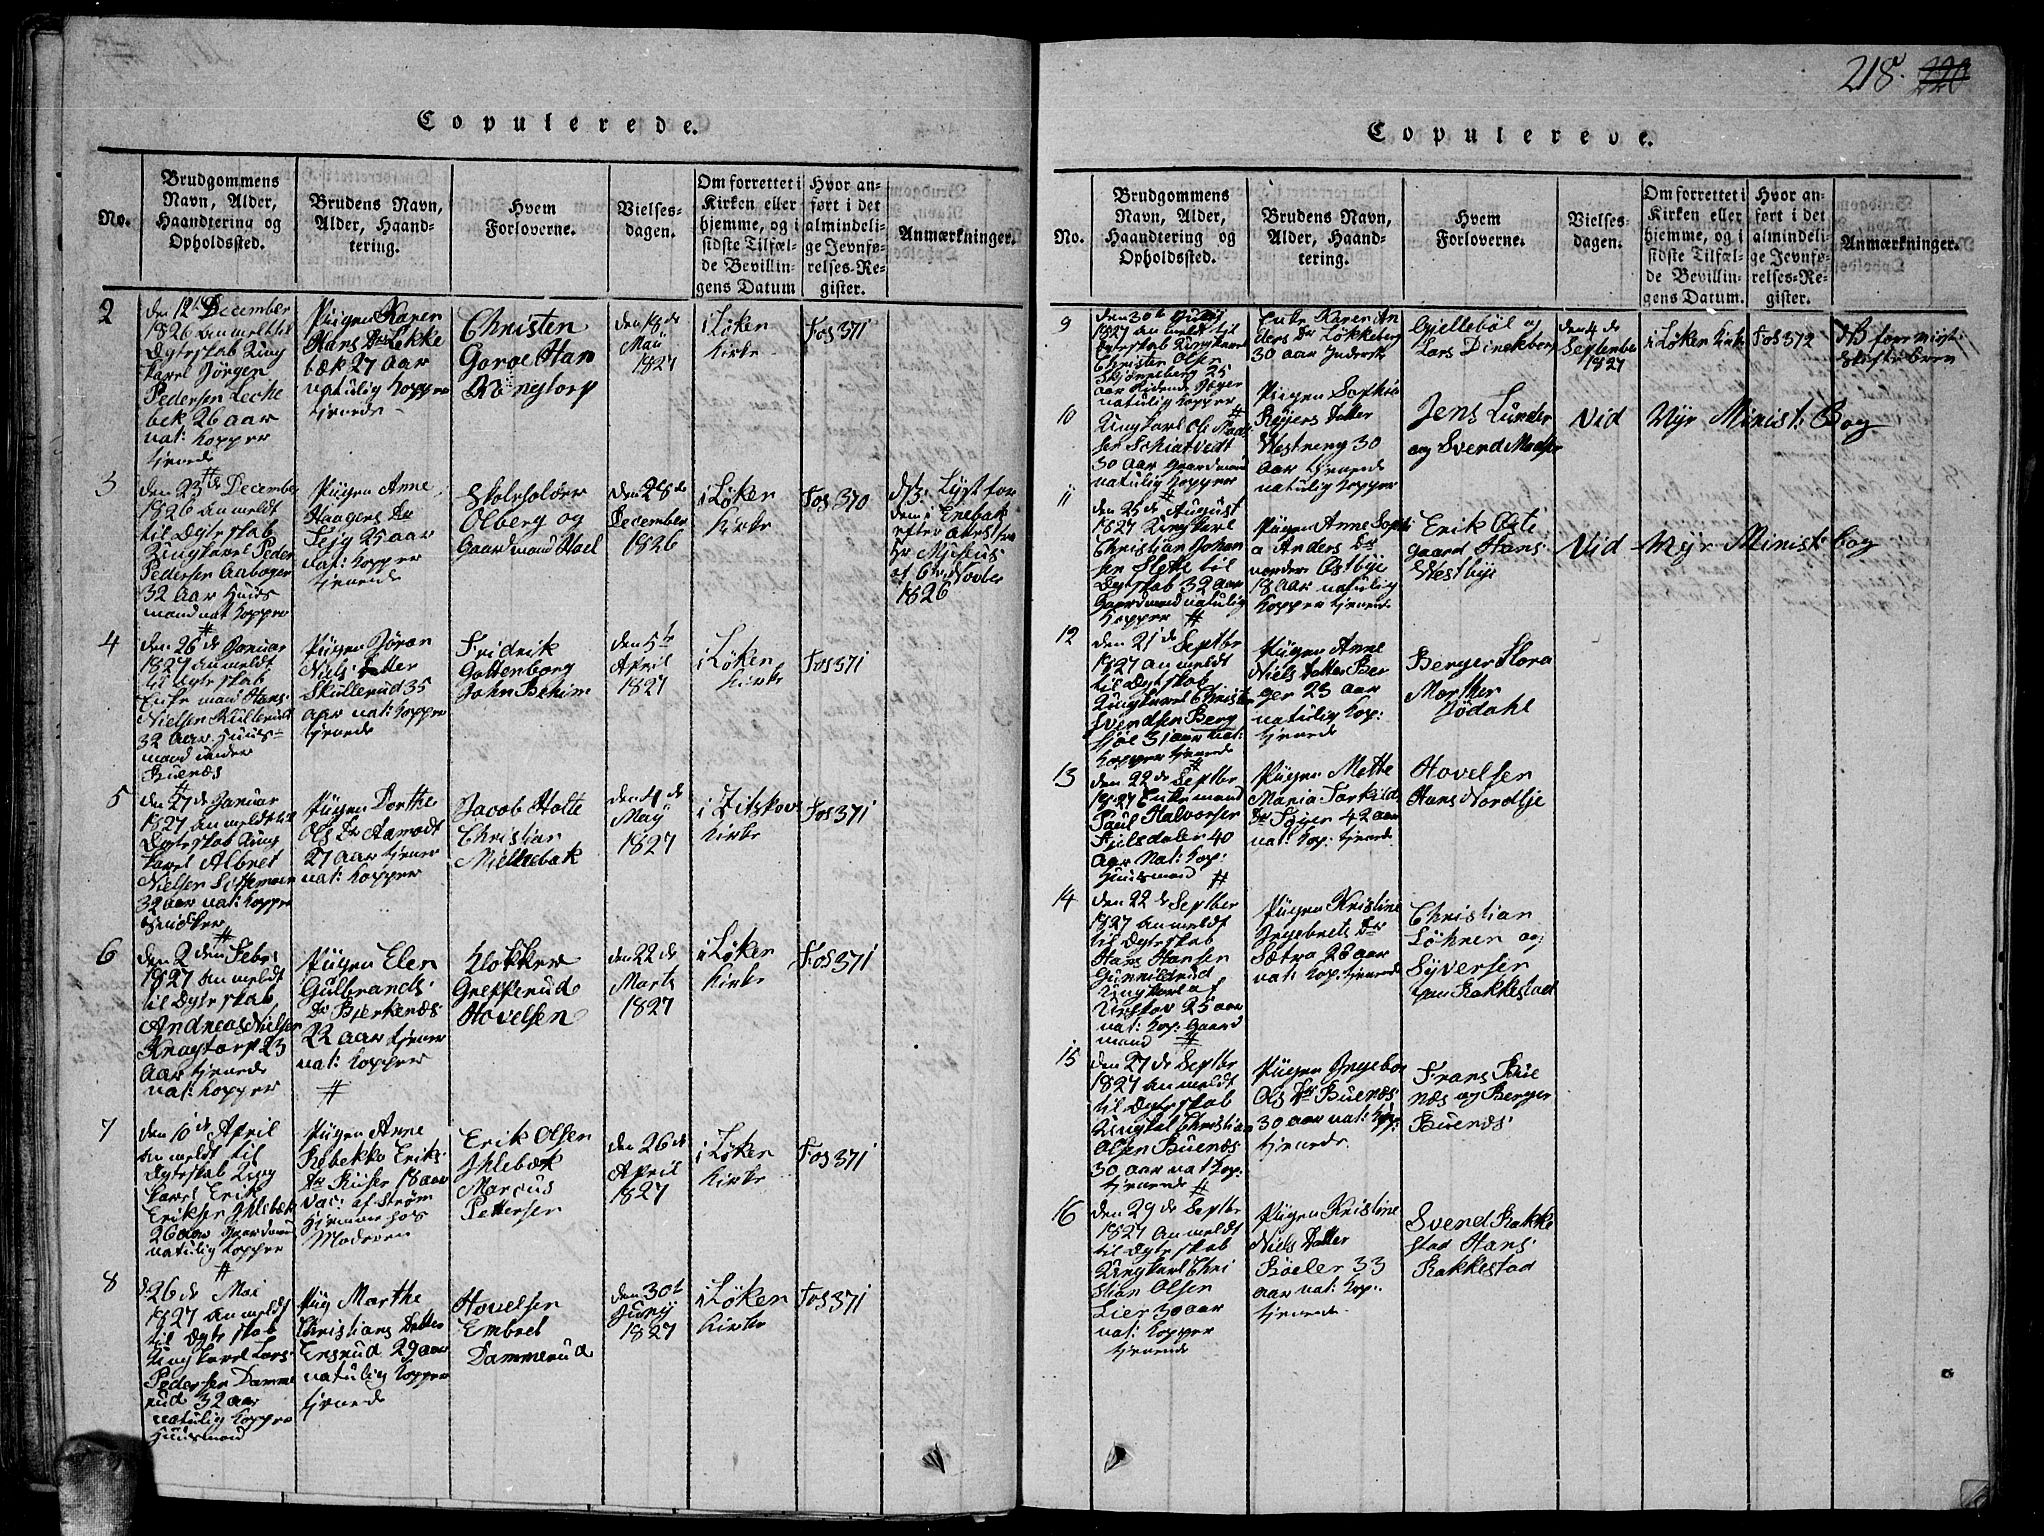 Copulerede.
No.
Brudgommens
Navn, Alder,
Haandtering og
Opholdssted.
Brudens Navn,
Alder, Haand-
tering.
Hvem
Forloverne.
Vielses-
dagen.
Om forrettet i
Kirken eller
hjemme, og i
sidste Tilfæl-
de Bevillin-
gens Datum
Hvor an-
ført i det
almindeli-
ge Jevnfø-
relses-Re-
gister.
Anmærkninger.
2
den 12te December
1826 anmeldt til
Ægteskab Ung
karl Jörgen
Pedersen Lecke
bek 26 aar
nat: Kopper
tjenede
Pigen Karen
Hans Dr Lekke
bæk 27 aar
natulig Kopper
tjenede
Christen
Garae Han
Krogtorp
den 18de
Mai
1827
i Løker
Kirke
Fos 371
3
den 23de December
1826 anmeldt
til Ægteskab
Ungkarl Peder
Pedersen Aaboger
32 aar Huus
mand nat Kopper
Pigen Anne
Haagens Dr
25 aar
nat: Kopper
tjenede
Skoleholder
Olberg og
Gaardmand Hoel
den 28de
December
1826
i Løker
Kirke
Fos 370
NB: Lyst for
dem i Enebak
efter
Hr
af 6te Novbr
1826
4
den 26de Januar
1827 anmeldt
til Ægteskab
Enke mand Hans
Nielsen Kulterud
32 aar Huus-
mand under
Buenæs
Pigen Jöran
Niels Datter
Skullerud 35
aar nat: Kopper
tjenede
Fridrik
Gottenborg
John Behim
den 5te
April
1827
i Løker
Kirke
Fos 371
5
den 27de Januar
1827 anmeldt til
Ægteskab Ung
karl Albret
Nielsen
32 aar nat: Kopper
Pigen Dorthe
Ols Dr Aamodt
27 aar tjener
nat: Kopper
Jacob Holte
Christian
Mellebæk
den 4de
Maij
1827
i Urskov
Kirke
Fos 371
6
den 2den Febr
1827 anmeldt
til Ægteskab
Andreas Nielsen
Krogtorp 23
Aar tjenede
nat: Kopper
Pigen Elen
Gulbrands
Dr Bjerkenæs
22 aar tjener
nat: Kopper
Klokker
Grepperud
Hovelsen
den 22de
Marts
1827
i Løker
Kirke
Fos 371
7
den 10de April
anmeldt til
Ægteskab Ung
karl Erik
Eriksen Ihlebæk
26 aar Gaardmand
natulig Kopper
Pigen Anne
Rebekka Eriks
Dr Kiser 18 aar
Vac: af Strøm
hjemme hos
Moderen
Erik Olsen
Ihlebæk
Marcus
Pettersen
den 26de
April
1827
i Løker
Kirke
Fos 371
8
d 26de Mai
1827 anmeldt
til Ægteskab
Ungkarl Lars
Pedersen Damme
rud 32 aar
natulig Kopper
Huusmand
Pig Marthe
Christians Datter
Ensrud 29 aar
natulig Kopper
tjenede
Hovelsen
Embret
Dammerud
den 30te
Junij
1827
i Løker
Kirke
Fos 371
218. 220
Copulerede.
No.
Brudgommens
Navn, Alder,
Haandtering og
Opholdssted.
Brudens Navn,
Alder, Haand-
tering.
Hvem
Forloverne.
Vielses-
dagen.
Om forrettet i
Kirken eller
hjemme, og i
sidste Tilfæl-
de Bevillin-
gens Datum.
Hvor an-
ført i det
almindeli-
ge Jevnfø-
relses-Re-
gister.
Anmærkninger.
9
den 30te Juli
1827 anmeldt til
Ægteskab Ungkarl
Christen Olsen
Skjönneberg 25
aar Ridende Jæger
natulig Kopper
Enke Karen An
ders Dr Løkkeberg
30 aar Inderst
Gjellebøl og
Lars Dinekberg
den 4de
September
1827
i Løker Kirke
Fos 372
NB forevigt
Skiftebrev
10
Ungkarl Ole Mad
sen Schiatvedt
30 aar Gaardmand
natulig Kopper
Pigen Sophie
Reijers Datter
Westreng 30
aar tjenede
natulig Kopper
Jens Lunder
og Svend Madsen
Vid
Nye Minist: Bog
11
den 25de August
1827 Ungkarl
Christian Johan
sen Slette til
Ægteskab 32 aar
Gaardmand natulig
Kopper
Pigen Anne Sophi
a Anders Dr
nordre Ostbye
18 aar natulig
Kopper tjenede
Erik Østi
gaard Hans
Westbye
Vid
Nye Minist: Bog
12
den 21de Septbr
1827 anmeldt
til Ægteskab
Ungkarl Christen
Svendsen Berg
sjöe 31 aar nat:
Kopper tjenede
Pigen Anne
Niels Datter Ber
ger 23 aar
natulig Kop:
tjenede
Berger Flora
Morther
Jödahl
13
den 22de Septbr
1827 Enkemand
Paul Halvorsen
Fjelsdalen 40
Aar Nat: Kop:
Huusmand
Pigen Mette
Maria Torkilds
Dr Soier 42 aar
nat: Kop: tjenede
Hovelsen
Hans Nordbye
14
den 22de Septbr
1827 anmeldt
til Ægteskab
Hans Hansen
Gunnildrud
Ungkarl af
Urskov 25 aar
nat: Kop: Gaard
mand
Pigen Kristine
Ingebrets Dr
Sætra 26 aar
nat: Kop: tjenede
Christian
Löhren og
Syversen
paa Rakkestad
15
den 27de Septbr
1827 anmeldt
til Ægteskab
Ungkal Christian
Olsen Buenæs
30 aar nat Kop:
tjenede
Pigen Ingebor
Ols Dr Buenæs
30 aar nat: Kop:
tjenede
Frans Bue
næs og Berger
Buenæs
16
den 29de Septbr
1827 anmeldt
til Ægteskab
Ungkarl Chri
stian Olsen
Lier 30 aar
nat: Kopper
tjenede
Pigen Kristine
Niels Datter
Böeler 33
aar nat: Kop:
tjenede
Svend Rakke
stad Hans
Rakkestad